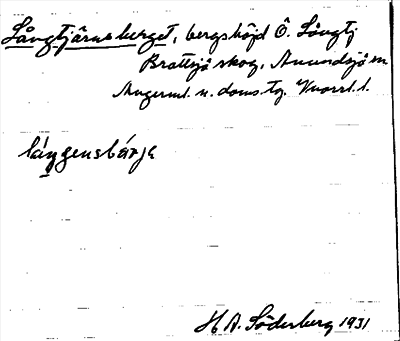 Långtjärnsberget, bergshöjd Ö. Långtj
Brattsjö skog, Anundsjö sn
Ångerml. n. doms tg. Vnorrl. l.
långensbárje
H A. Söderberg 1931